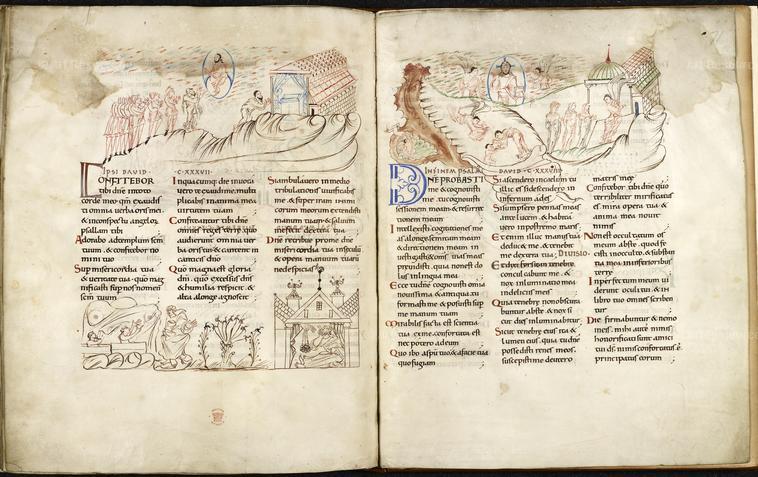 IPSI DAVID · C·XXXVII·
CONFITEBOR
tibi dne intoto
corde meo qm exaudis
ti omnia uerba oris mei
& inconspectu angeloꝝ
psallam tibi
Adorabo adtemplum scm
tuum & confitebor no
mini tuo
Sup misericordia tua
& ueritate tua quo mag
nificasti sup nos nomen
scm tuum
Inquacumq; die inuoca
uero te exaudi me multi
plicabis in anima mea
uirtutem tuam
Confiteantur tibi dne
omnes reges terre quo
audierunt omnia uer
ba oris tui & cantent in
canticis dni
Quo magna est gloria
dni quo excelsus dns
& humilia respicit &
alta alonge agnoscit
Si ambulauero in medio
tribulationis uiuificabis
me & super iram inimi
corum meorum extendisti
manum tuam & saluum
me fecit dextera tua
Dne retribues prome dne
misericordia tua in sęculum
& opera manuum tuarū
ne despicias
IN FINEM PSALM DAVID · C·XXXVIII
DNE PROBASTI
me & cognouisti
me tu cognouisti
sessionem meam & resurre
ctionem meam
Intellexisti cogitationes me
as alonge semitam meam
& directionem meam in
uestigasti & omnes uias meas
preuidisti quia non est do
lus in lingua mea
Ecce tu dne cognouisti omnia
nouissima & antiqua tu
formasti me & posuisti sup
me manum tuam
Mirabilis facta est scientia
tua ex me confortata est
nec potero ad eam
Quo ibo a spu tuo & a facie tua
quo fugiam
Si ascendero in caelum tu
illic es si descendero in
infernum ades
Si sumpsero pennas meas
ante lucem & habita
uero in postremo maris
Etenim illuc manus tua
deduc& me & tenebit
me dextera tua · DIUISIO·
Et dixi forsitan tenebre
conculcabunt me &
nox inluminatio mea
in deliciis meis
Quia tenebre non obscura
buntur abs te & nox si
cut dies inluminabitur
Sicut tenebre eius ita &
lumen eius quia tu dne
possedisti renes meos
suscepisti me de utero
matris meę
Confitebor tibi dne quo
terribiliter mirificatus
es mira opera tua &
anima mea nouit
nimis
Non est occultatum os
meum abs te quod fe
cisti in occulto & substan
tia mea in inferioribus
terrę
Inperfectum meum ui
derunt oculi tui & in
libro tuo omnes scriben
tur
Dies firmabuntur & nemo
in eis mihi autē nimis
honorificati sunt amici
tui ds nimis confortatus ē
principatus eorum